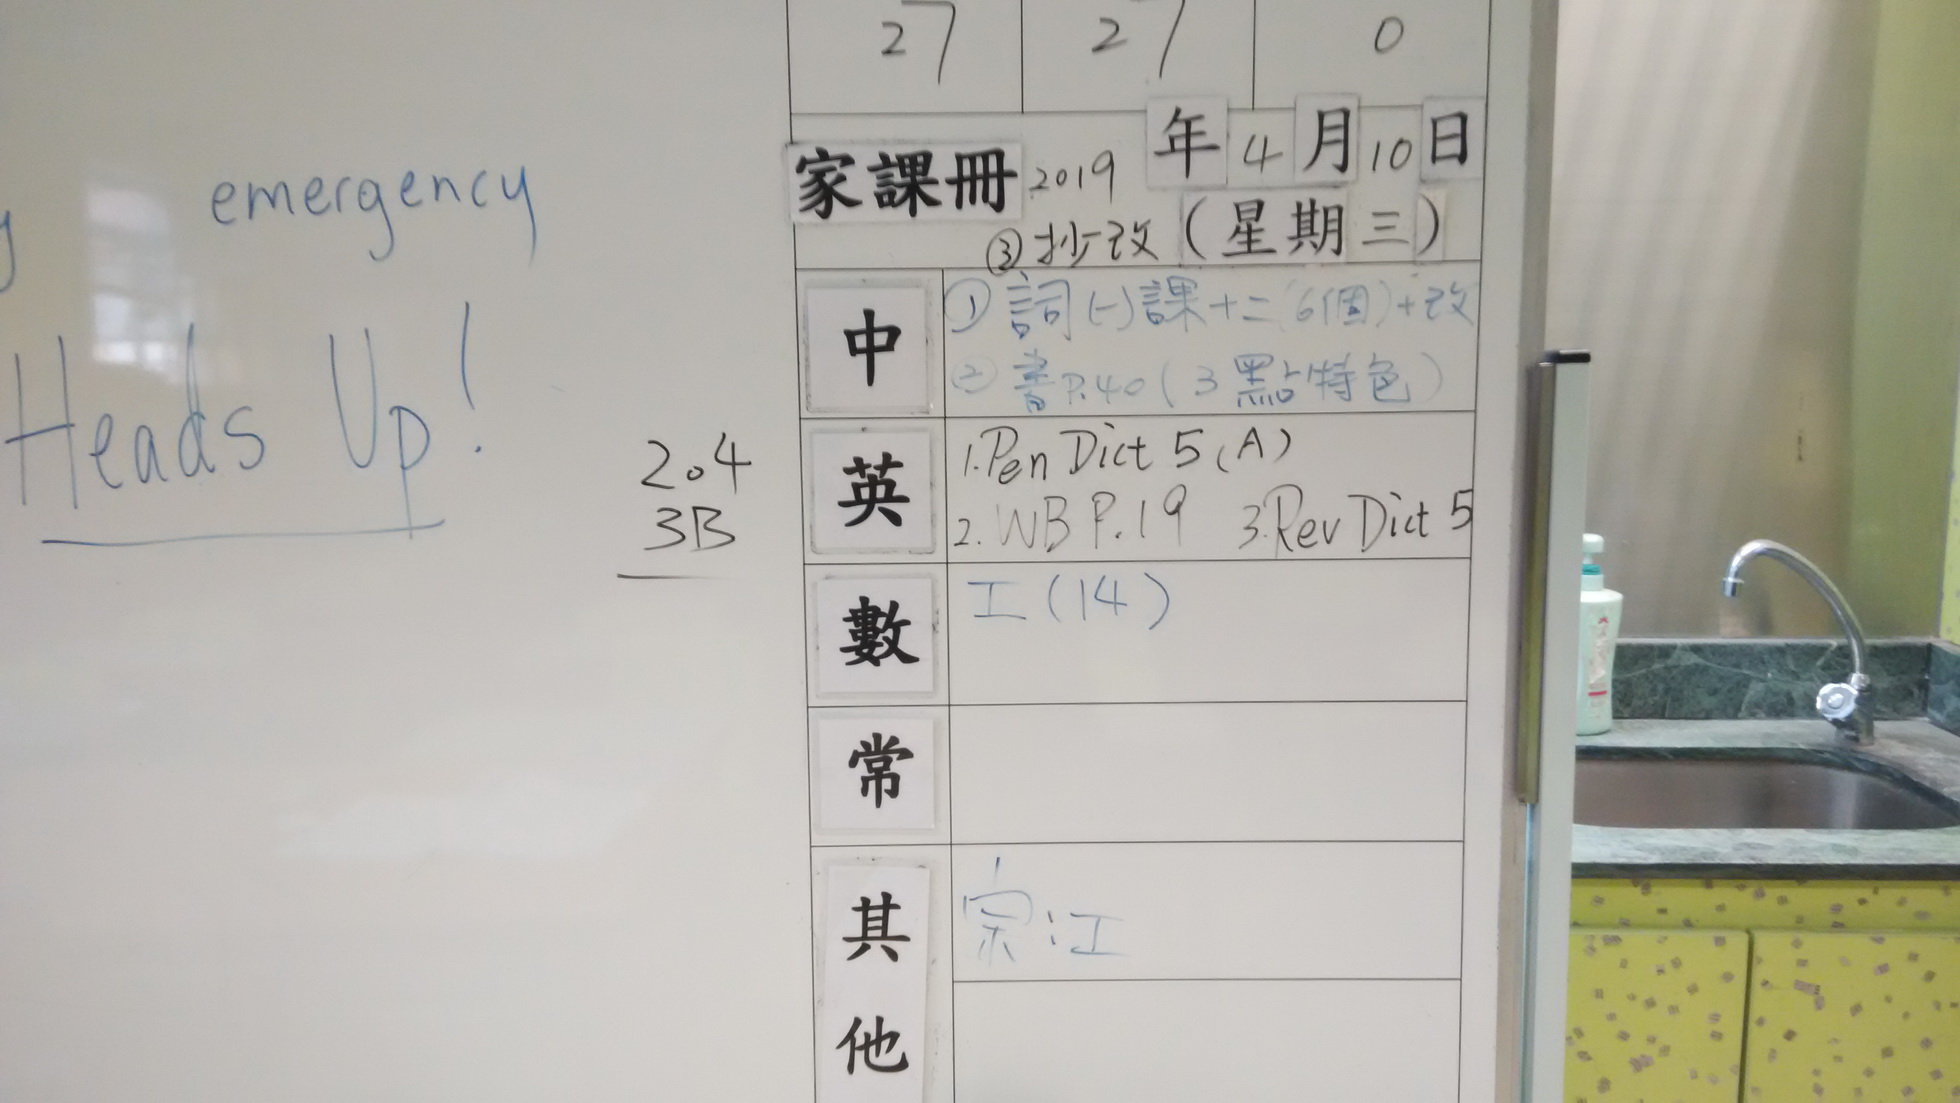 emergency
Heads Up!
2.4
3B
27 27 0
家課冊 2019 年 4 月 10 日
③抄改 (星期三)
中 ① 詞(一)課十二(6個)+改
② 書P.40 (3點特色)
英 1.Pen Dict 5 (A)
2. WB P.19 3.Rev Dict 5
數 工 (14)
常
其他 宗:工